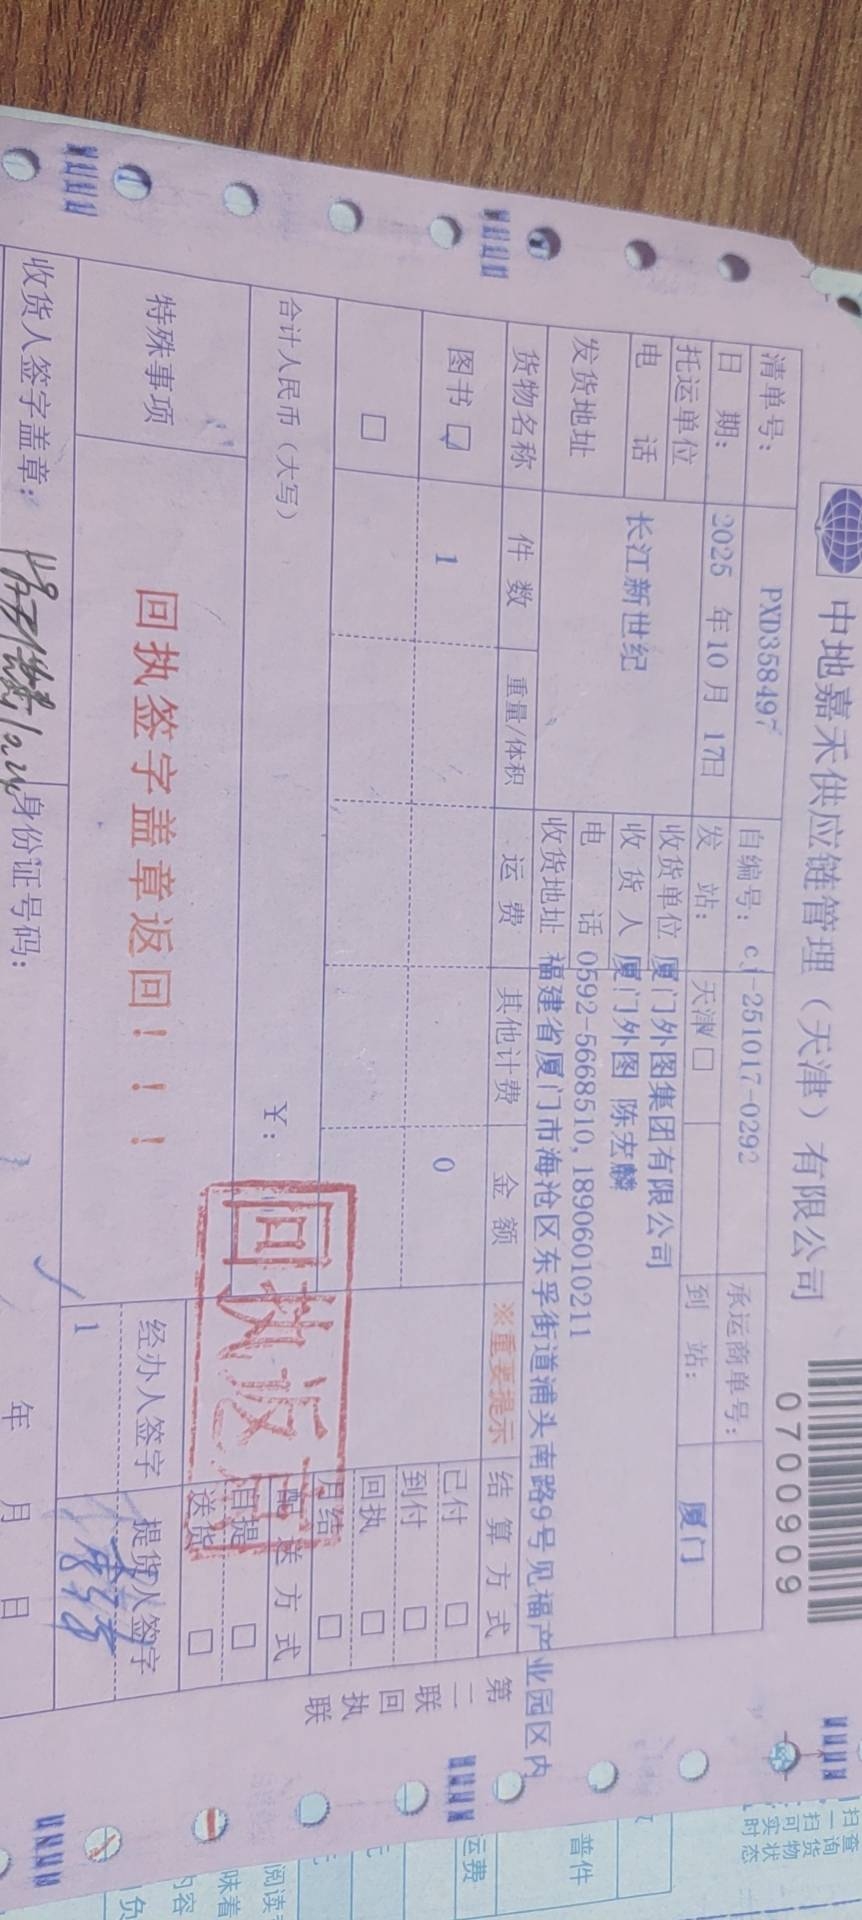 中地嘉禾供应链管理（天津）有限公司
0700909
清单号： PXD358497 自编号：cj-251017-0292 承运商单号：
日 期： 2025 年 10 月 17日 发 站： 天津 □ 到 站： 厦门
托运单位 长江新世纪 收货单位 厦门外图集团有限公司
电 话 收 货 人 厦门外图 陈宏麟
发货地址 电 话 0592-5668510,18906010211
收货地址 福建省厦门市海沧区东孚街道浦头南路9号见福产业园区内
货物名称 件 数 重量/体积 运 费 其他计费 金 额 ※重要提示 结 算 方 式
图书 ☑ 1 0 已付 □
□ 到付 □
回执 □
月结 □
合计人民币（大写） ￥： 配 送 方 式
自提 □
送货 □
特殊事项 回执签字盖章返回！！！ 经办人签字 提货人签字
1
收货人签字盖章： 身份证号码： 年 月 日
回执返
第二联 回执联
扫查
一询
扫货
可物
实状
时态
普件
运费
元
元
阅读
味着
内容
负